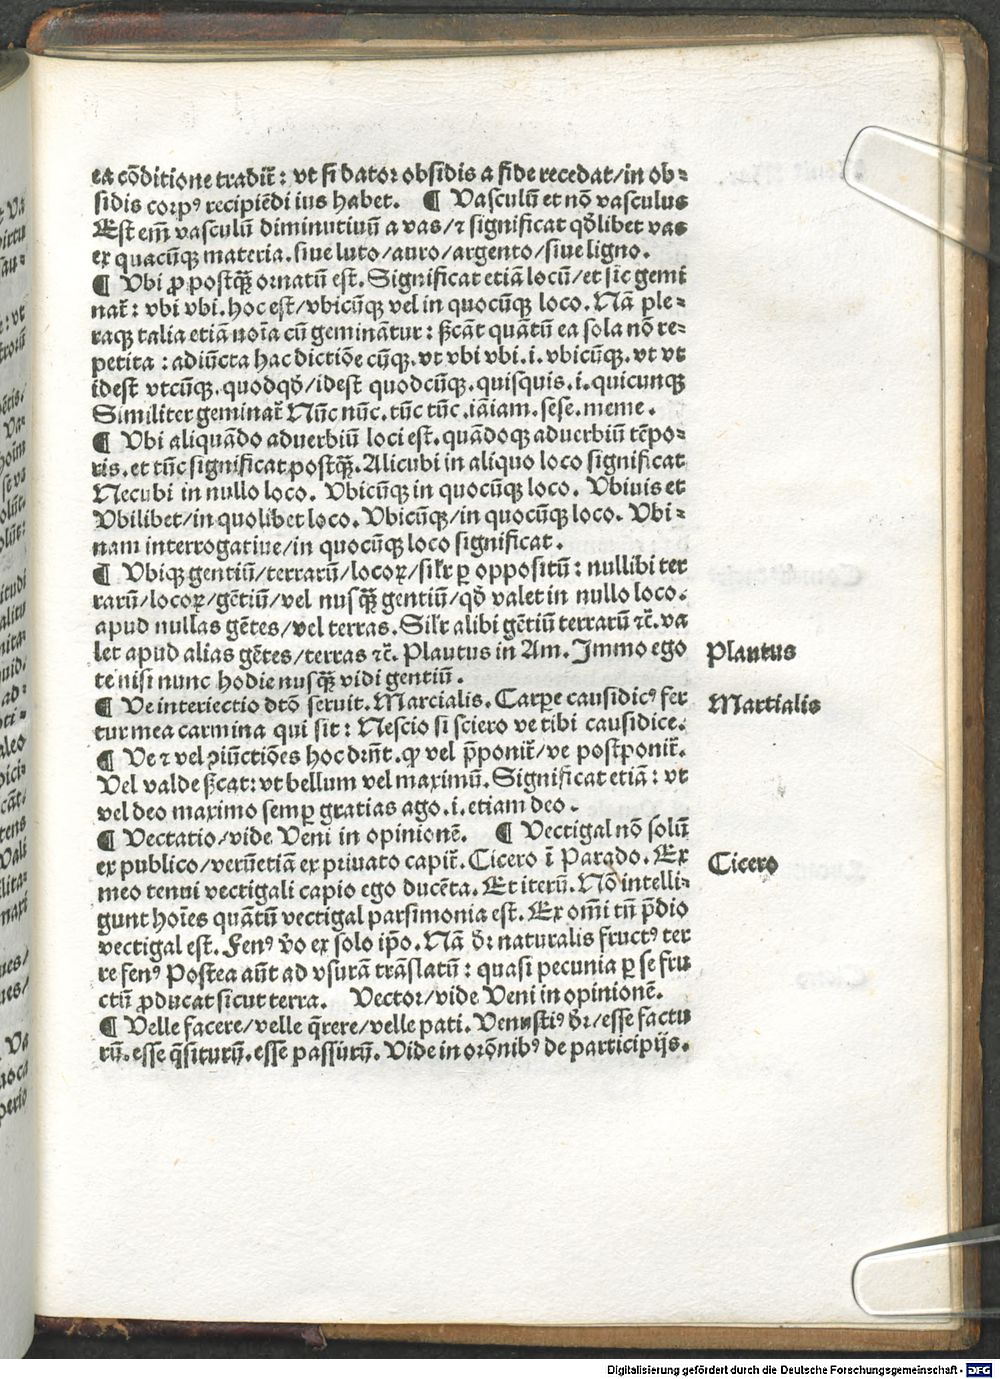 ea cōditione tradit̄: vt si dator obsidis a fide recedat/in ob⸗
sidis corpꝰ recipiēdi ius habet. ¶ Vasculū et nō vasculus
Est em̄ vasculū diminutiuū a vas/⁊ significat qđlibet vas
ex quacūqꝫ materia. siue luto/auro/argento/siue ligno.
¶ Vbi ꝓ postqꝫ̄ ornatū est. Significat etiā locū/et sic gemi
nat̄: vbi vbi. hoc est/vbicūqꝫ vel in quocūqꝫ loco. Nā ple⸗
raqꝫ talia etiā noīa cū geminātur: ẞcāt quātū ea sola nō re⸗
petita: adiūcta hac dictiōe cūqꝫ. vt vbi vbi .i. vbicūqꝫ. vt vt
idest vtcūqꝫ. quodqđ/idest quodcūqꝫ. quisquis .i. quicunqꝫ
Similiter geminat̄ Nūc nūc. tūc tūc. iāiam. sese. meme.
¶ Vbi aliquādo aduerbiū loci est. quādoqꝫ aduerbiū tēpo⸗
ris. et tūc significat postqꝫ̄. Alicubi in aliquo loco significat
Necubi in nullo loco. Vbicūqꝫ in quocūqꝫ loco. Vbiuis et
Vbilibet/in quolibet loco. Vbicūqꝫ/in quocūqꝫ loco. Vbi⸗
nam interrogatiue/in quocūqꝫ loco significat.
¶ Vbiqꝫ gentiū/terrarū/locoꝝ/silr̄ ꝑ oppositū: nullibi ter
rarū/locoꝝ/gētiū/vel nusqꝫ̄ gentiū/qđ valet in nullo loco.
apud nullas gētes/vel terras. Silr̄ alibi gētiū terrarū ⁊c̄. va
let apud alias gētes/terras ⁊c̄. Plautus in Am. Immo ego
te nisi nunc hodie nusqꝫ̄ vidi gentiū.
¶ Ve interiectio dt̄ō seruit. Marcialis. Carpe causidicꝰ fer
tur mea carmina qui sit: Nescio si sciero ve tibi causidice.
¶ Ve ⁊ vel ꝯiūctiōes hoc dr̄nt. ꝙ vel p̄ponit̄/ve postponit̄.
Vel valde ẞcat: vt bellum vel maximū. Significat etiā: vt
vel deo maximo semꝑ gratias ago .i. etiam deo.
¶ Vectatio/vide Veni in opinionē. ¶ Vectigal nō solū
ex publico/verūetiā ex priuato capit̄. Cicero ī Parado. Ex
meo tenui vectigali capio ego ducēta. Et iterū. Nō intelli⸗
gunt hoīes quātū vectigal parsimonia est. Ex om̄i tn̄ p̄dio
vectigal est. Fenꝰ v̄o ex solo ip̄o. Nā dr̄ naturalis fructꝰ ter
re fenꝰ Postea aūt ad vsurā trāslatū: quasi pecunia ꝑ se fru
ctū ꝓducat sicut terra. Vector/vide Veni in opinionē.
¶ Velle facere/velle q̄rere/velle pati. Venustiꝰ dr̄/esse factu
rū. esse q̄siturū. esse passurū. Vide in orōnibꝰ de participijs.
Plautus
Martialis
Cicero
Digitalisierung gefördert durch die Deutsche Forschungsgemeinschaft - DFG